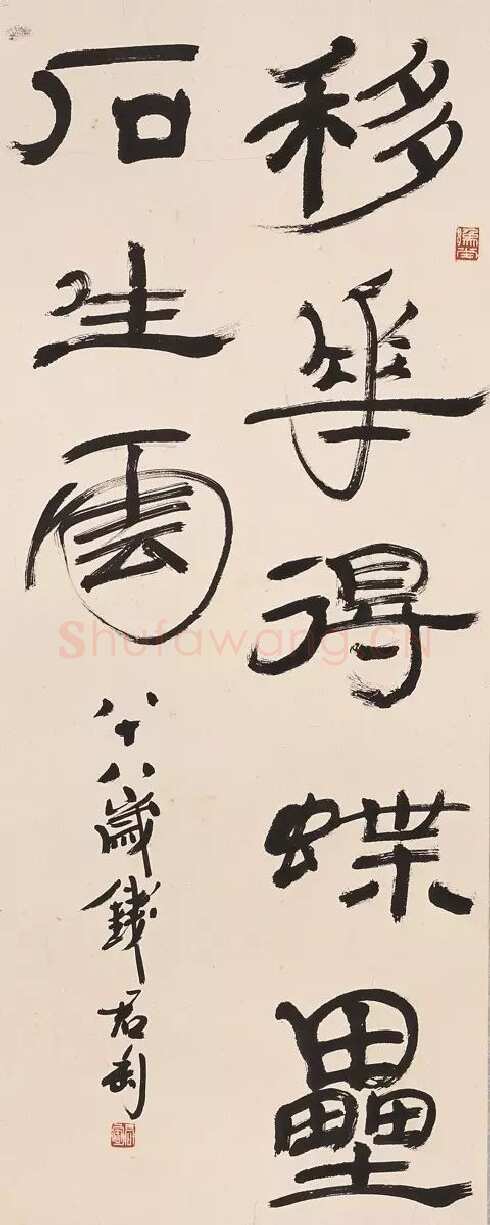 移華得蝶壘
石生雲
八十八歲錢君匋
Shufawang.CN